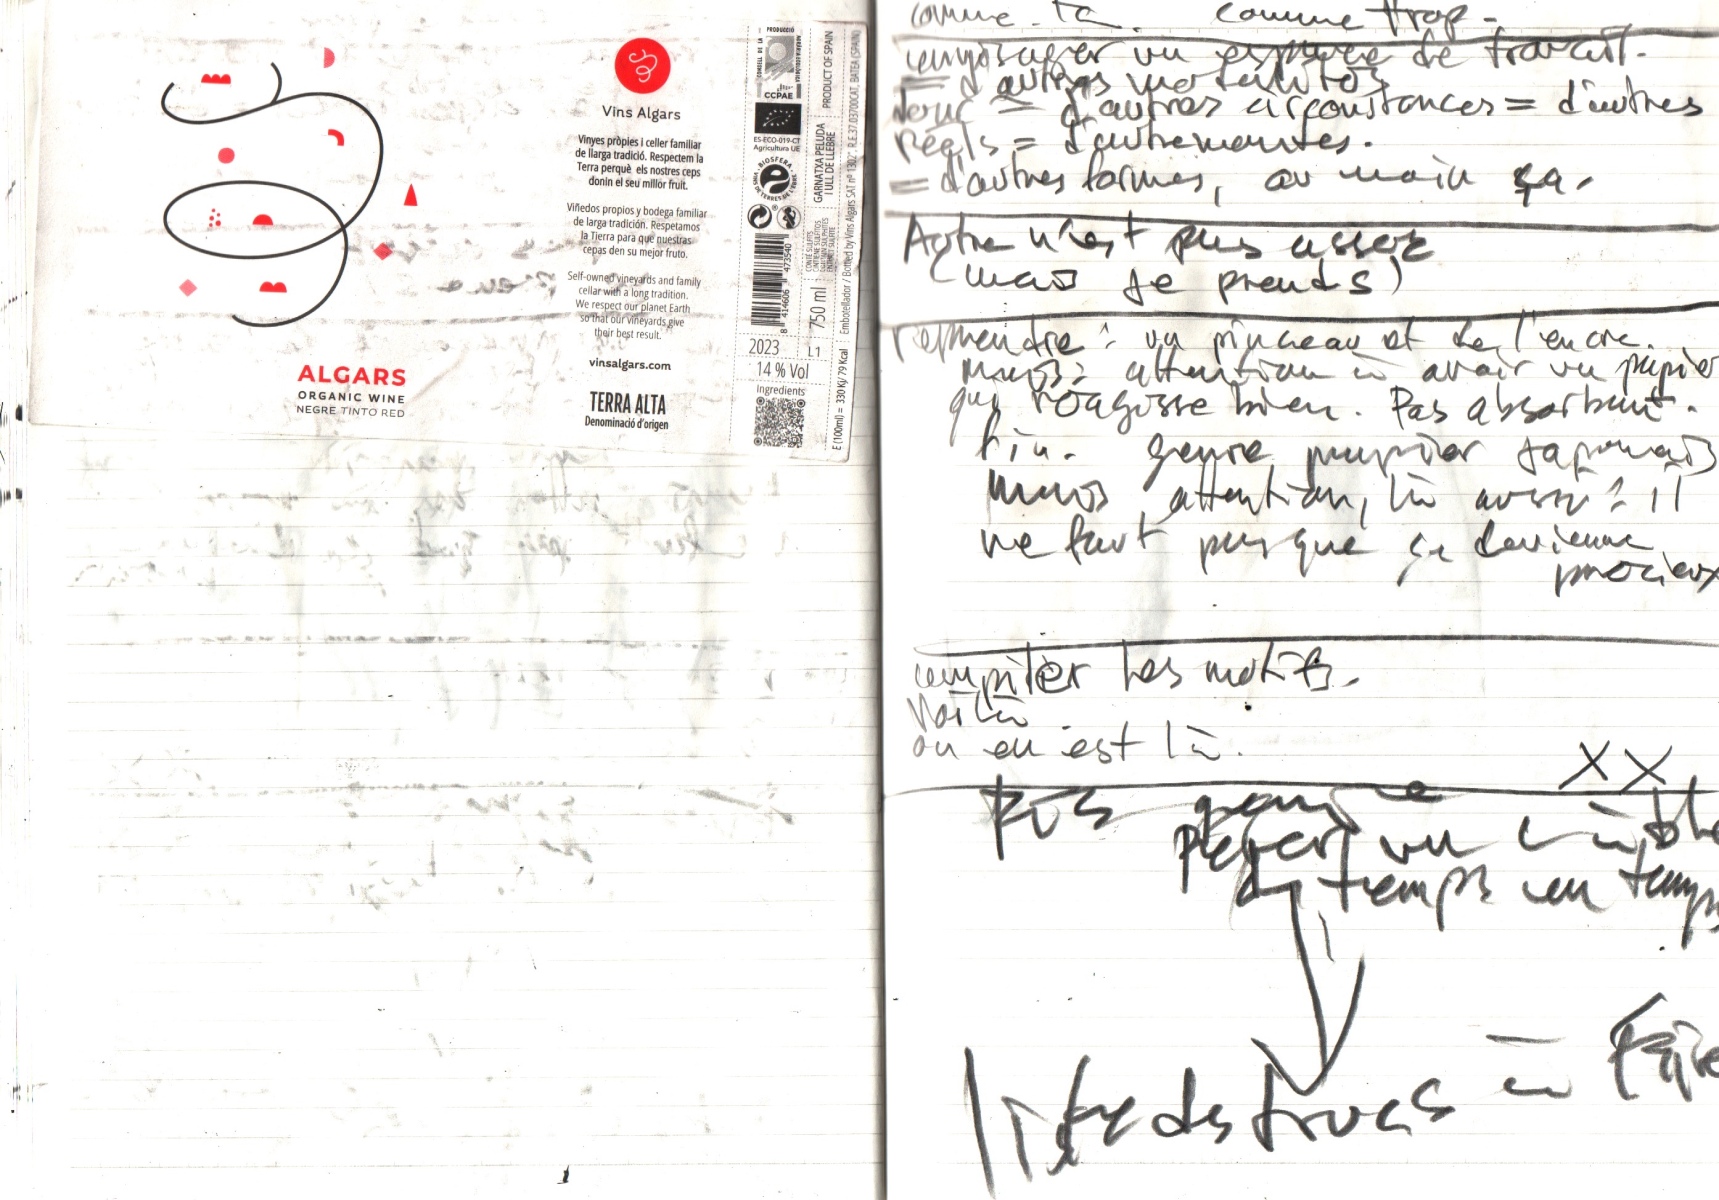 ALGARS
ORGANIC WINE
NEGRE TINTO RED
Vins Algars
Vinyes pròpies i celler familiar
de llarga tradició. Respectem la
Terra perquè els nostres ceps
donin el seu millor fruit.
Viñedos propios y bodega familiar
de larga tradición. Respetamos
la Tierra para que nuestras
cepas den su mejor fruto.
Self-owned vineyards and family
cellar with a long tradition.
We respect our planet Earth
so that our vineyards give
their best result.
vinsalgars.com
TERRA ALTA
Denominació d'origen
CCPAE
ES-ECO-019-CT
Agricultura UE
8 414606 473540
2023
14 % Vol
Ingredients
PRODUCT OF SPAIN
GARNATXA PELUDA
I ULL DE LLEBRE
750 ml
L1
Embotellador / Bottled by Vins Algars SAT nº 1302
BATEA (SPAIN)
E (100ml) = 330 Kj/ 79 Kcal
comme trop -
un espace de travail.
= d'autres
donc = d'autres circonstances = d'autres
= d'autrementes.
= d'autres formes, au moin ça.
Autre n'est pas assez
(mais je prends)
reprendre : un pinceau et de l'encre.
mais : attention à avoir un papier
qui réagisse bien. Pas absorbant.
fin. genre papier japonais
mais attention, là aussi : il
ne faut pas que ça devienne
précieux
compiler les motifs.
Voilà
on en est là.
XX
de temps en temps
liste des trucs à faire